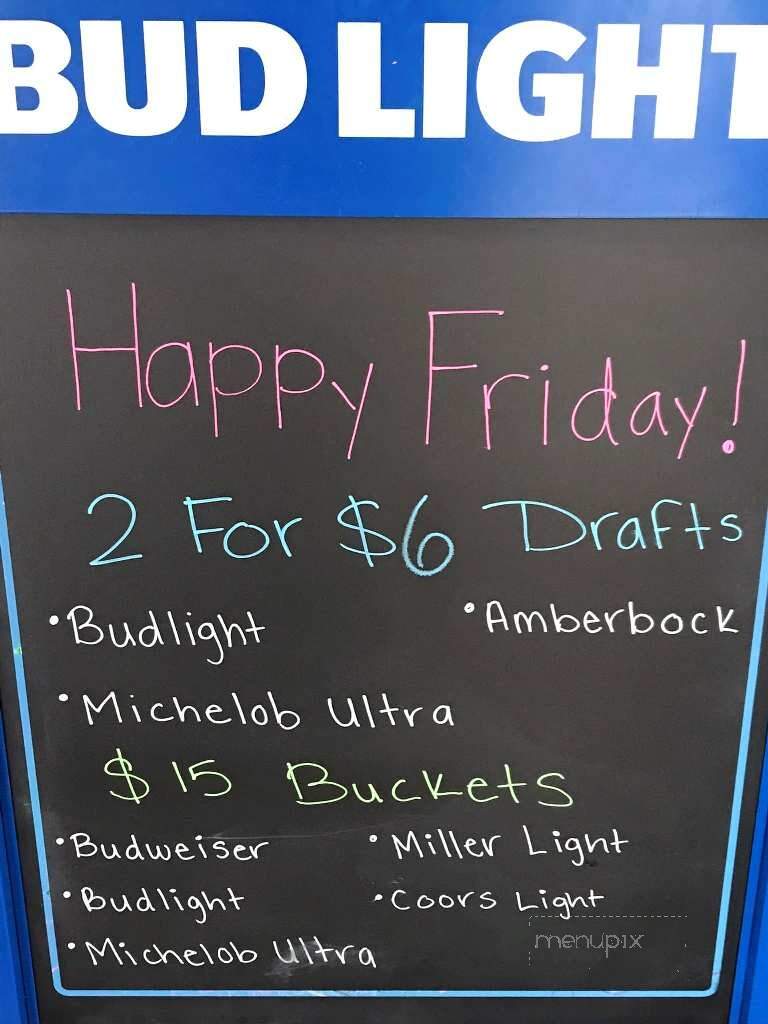 BUD LIGHT
Happy Friday!
2 For $6 Drafts
•Budlight •Amberbock
•Michelob Ultra
$15 Buckets
•Budweiser •Miller Light
•Budlight •Coors Light
•Michelob Ultra
menupix